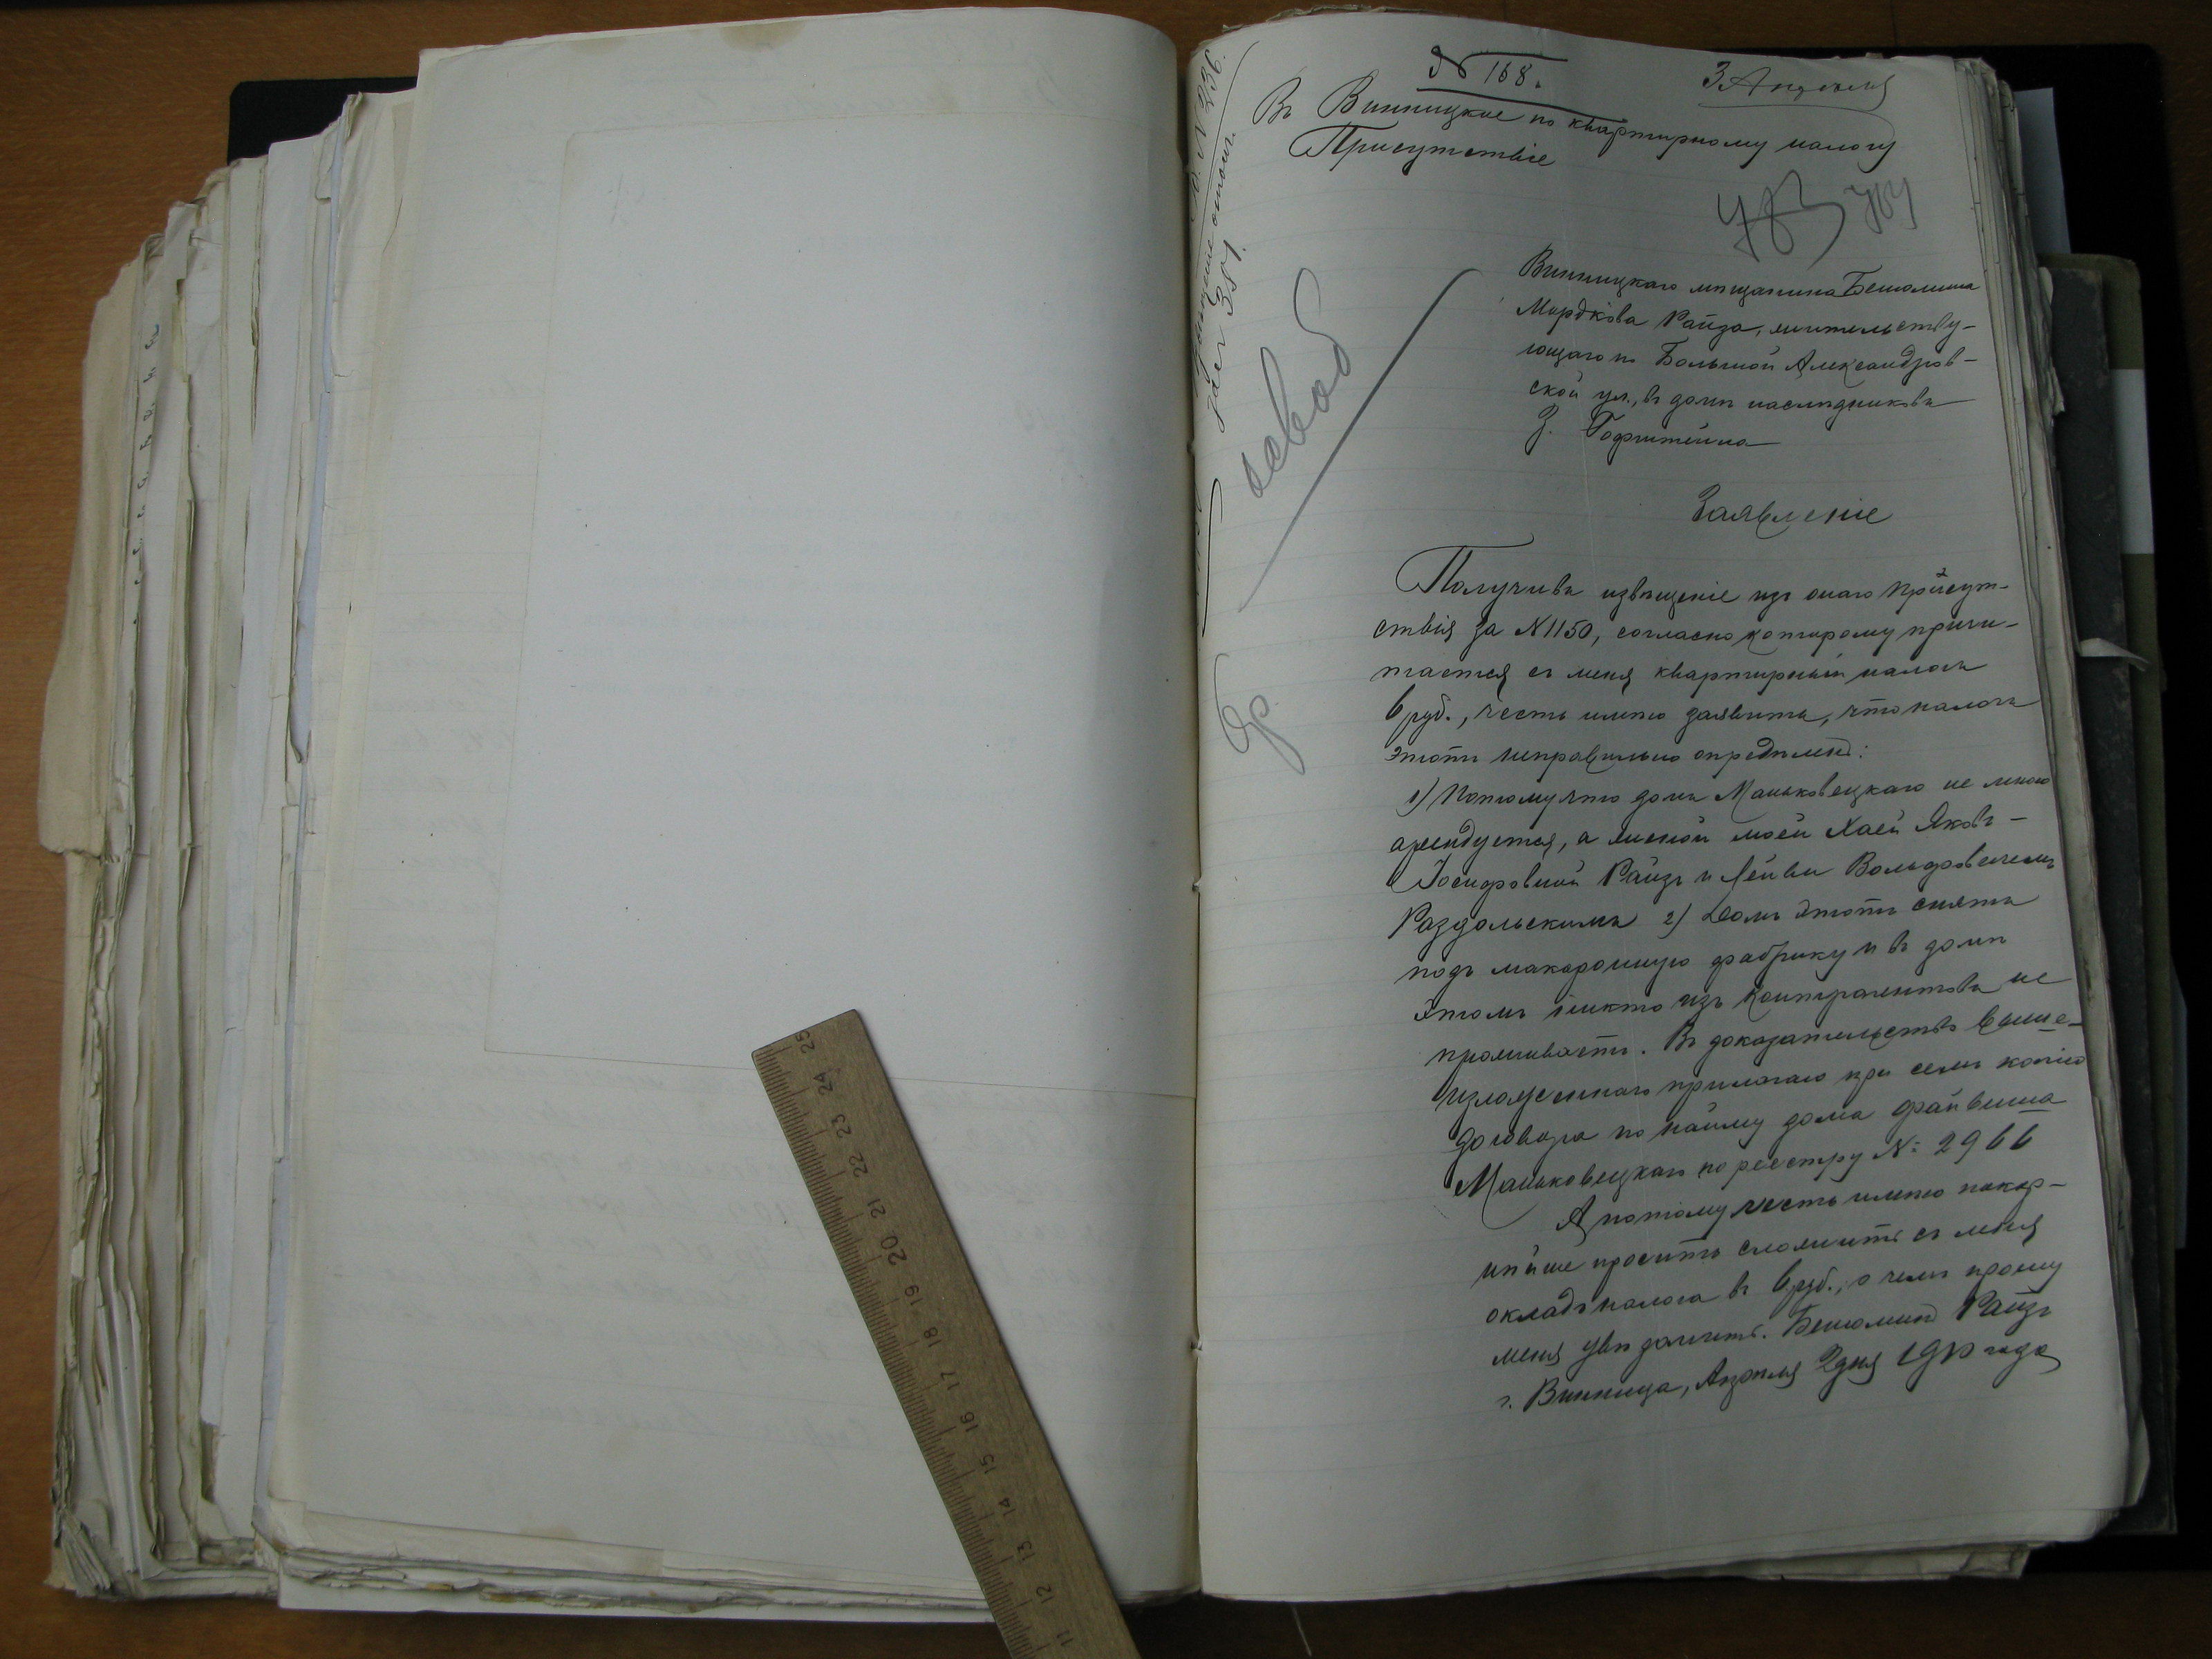 № 168.
3 Апрѣля
Въ Винницкое по квартирному налогу
Присутствіе
Винницкаго мѣщанина Беніомина
Мордкова Райза, жительству-
ющаго по Большой Александров-
ской ул., въ домѣ наслѣдниковъ
З. Гофштейна
Заявленіе
Получивъ извѣщеніе изъ онаго Присут-
ствія за №1150, согласно которому причи-
тается съ меня квартирный налогъ
6 руб., честь имѣю заявить, что налогъ
этотъ неправильно опредѣленъ:
1) Потому что домъ Маньковецкаго не мною
арендуется, а женой моей Хаей Яковъ-
Іосифовной Райзъ и Лейви Вольфовичемъ
Раздольскимъ 2) Домъ этотъ снятъ
подъ макаронную фабрику и въ домѣ
этомъ никто изъ контрагентовъ не
проживаетъ. Въ доказательство выше-
изложеннаго прилагаю при семъ копію
договора по найму дома Файвиша
Маньковецкаго по реестру №: 2966
А потому честь имѣю покор-
нѣйше просить сложить съ меня
окладъ налога въ 6 руб., о чемъ прошу
меня увѣдомить. Беніоминъ Райзъ
г. Винница, Апрѣля 2 дня 1910 года
освоб
№ 236.
11
12
13
14
15
16
17
18
19
20
21
22
23
24
25